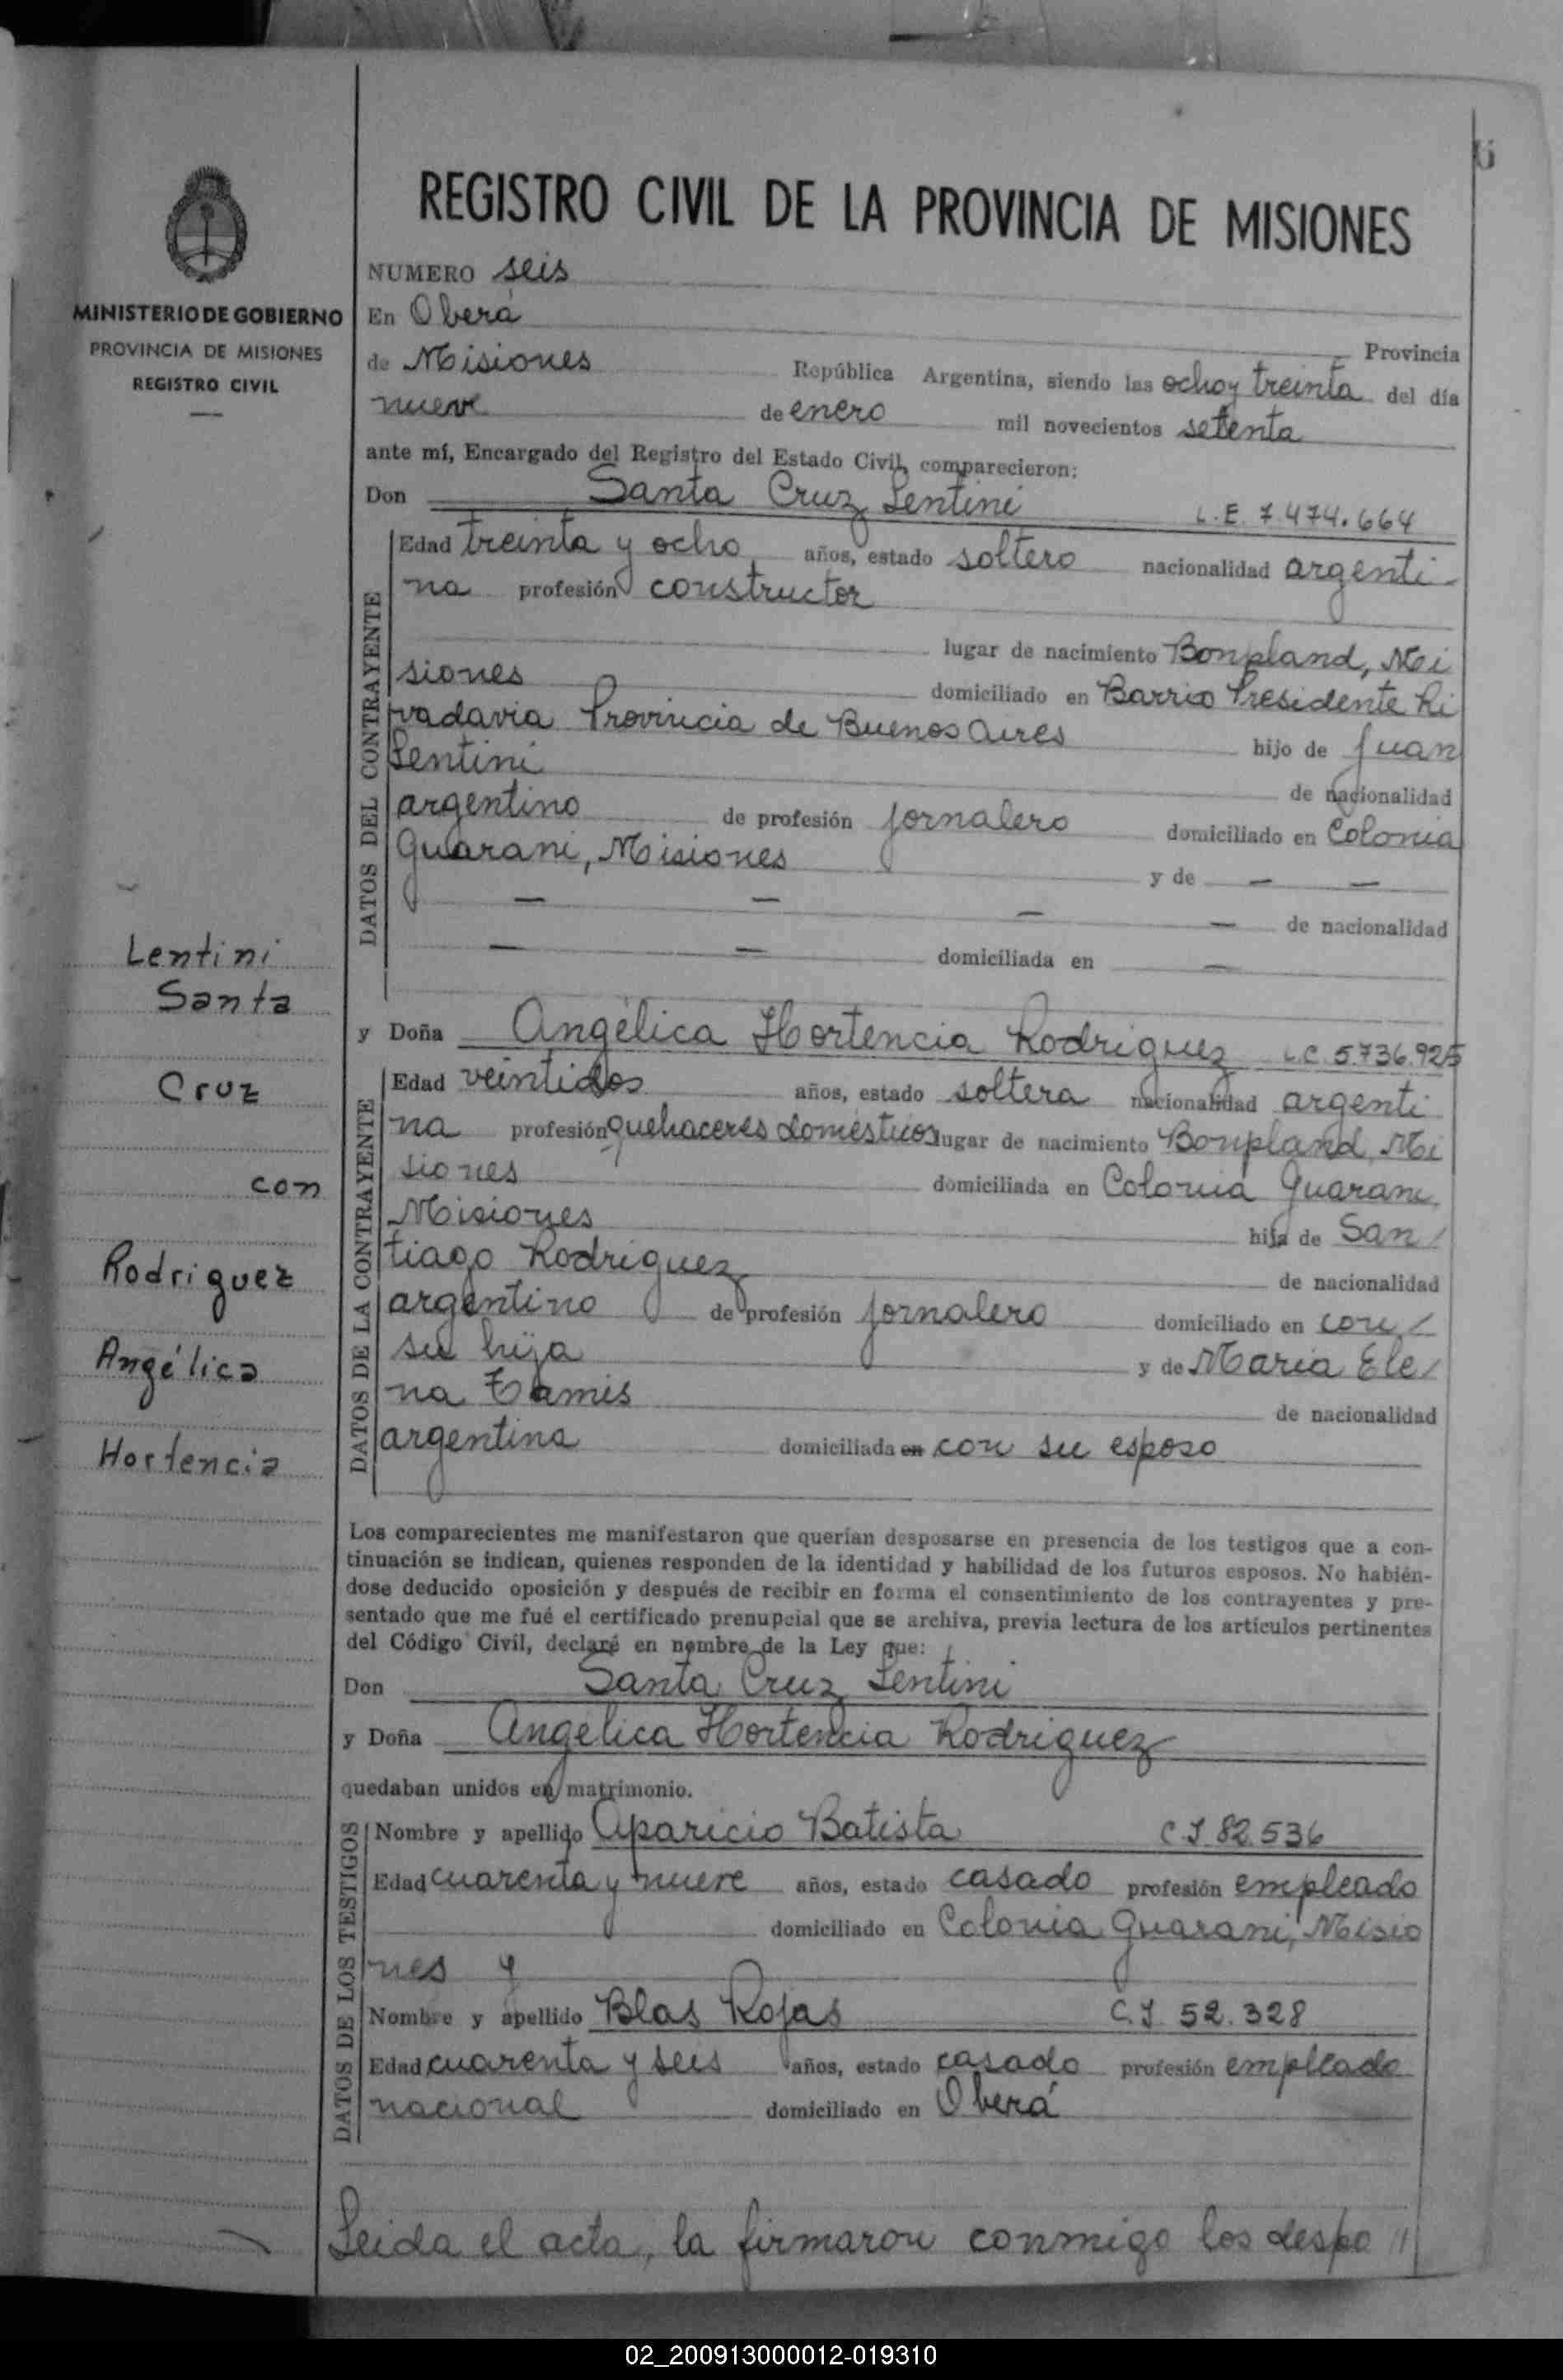 6
REGISTRO CIVIL DE LA PROVINCIA DE MISIONES
MINISTERIO DE GOBIERNO
PROVINCIA DE MISIONES
REGISTRO CIVIL
NUMERO seis
En Oberá
Provincia
de Misiones República Argentina, siendo las ocho y treinta del día
nueve de enero mil novecientos setenta
ante mí, Encargado del Registro del Estado Civil, comparecieron:
Don Santa Cruz Lentini L.E. 7.474.664
DATOS DEL CONTRAYENTE
Edad treinta y ocho años, estado soltero nacionalidad argenti
na profesión constructor
lugar de nacimiento Bonpland, Mi
siones domiciliado en Barrio Presidente Ri
vadavia Provincia de Buenos Aires hijo de Juan
Lentini de nacionalidad
argentino de profesión jornalero domiciliado en Colonia
Guarani, Misiones y de — —
— — — — de nacionalidad
— — domiciliada en —
y Doña Angélica Hortencia Rodriguez L.C. 5.736.925
DATOS DE LA CONTRAYENTE
Edad veintidos años, estado soltera nacionalidad argenti
na profesión quehaceres domésticos lugar de nacimiento Bonpland, Mi
siones domiciliada en Colonia Guarani
Misiones hija de San/
tiago Rodriguez de nacionalidad
argentino de profesión jornalero domiciliado en con/
su hija y de Maria Ele/
na Tamis de nacionalidad
argentina domiciliada en con su esposo
Los comparecientes me manifestaron que querían desposarse en presencia de los testigos que a con-
tinuación se indican, quienes responden de la identidad y habilidad de los futuros esposos. No habién-
dose deducido oposición y después de recibir en forma el consentimiento de los contrayentes y pre-
sentado que me fué el certificado prenupcial que se archiva, previa lectura de los artículos pertinentes
del Código Civil, declaré en nombre de la Ley que:
Don Santa Cruz Lentini
y Doña Angélica Hortencia Rodriguez
quedaban unidos en matrimonio.
DATOS DE LOS TESTIGOS
Nombre y apellido Aparicio Batista C.I 82.536
Edad cuarenta y nueve años, estado casado profesión empleado
domiciliado en Colonia Guarani, Misio
nes y
Nombre y apellido Blas Rojas C.I. 52.328
Edad cuarenta y seis años, estado casado profesión empleado
nacional domiciliado en Oberá
Leida el acta, la firmaron conmigo los despo //
Lentini
Santa
Cruz
con
Rodriguez
Angélica
Hortencia
02_200913000012-019310